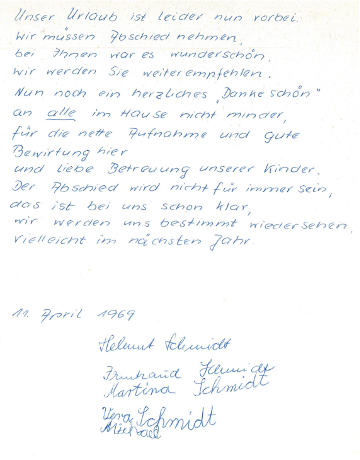 Unser Urlaub ist leider nun vorbei.
Wir müssen Abschied nehmen,
bei Ihnen war es wunderschön,
wir werden Sie weiterempfehlen.
Nun noch ein herzliches „Dankeschön"
an alle im Hause nicht minder,
für die nette Aufnahme und gute
Bewirtung hier
und liebe Betreuung unserer Kinder.
Der Abschied wird nicht für immer sein,
das ist bei uns schon klar,
wir werden uns bestimmt wiedersehen,
vielleicht im nächsten Jahr.
11. April 1969
Helmut Schmidt
Schmidt
Martina Schmidt
Vera Schmidt
Michael